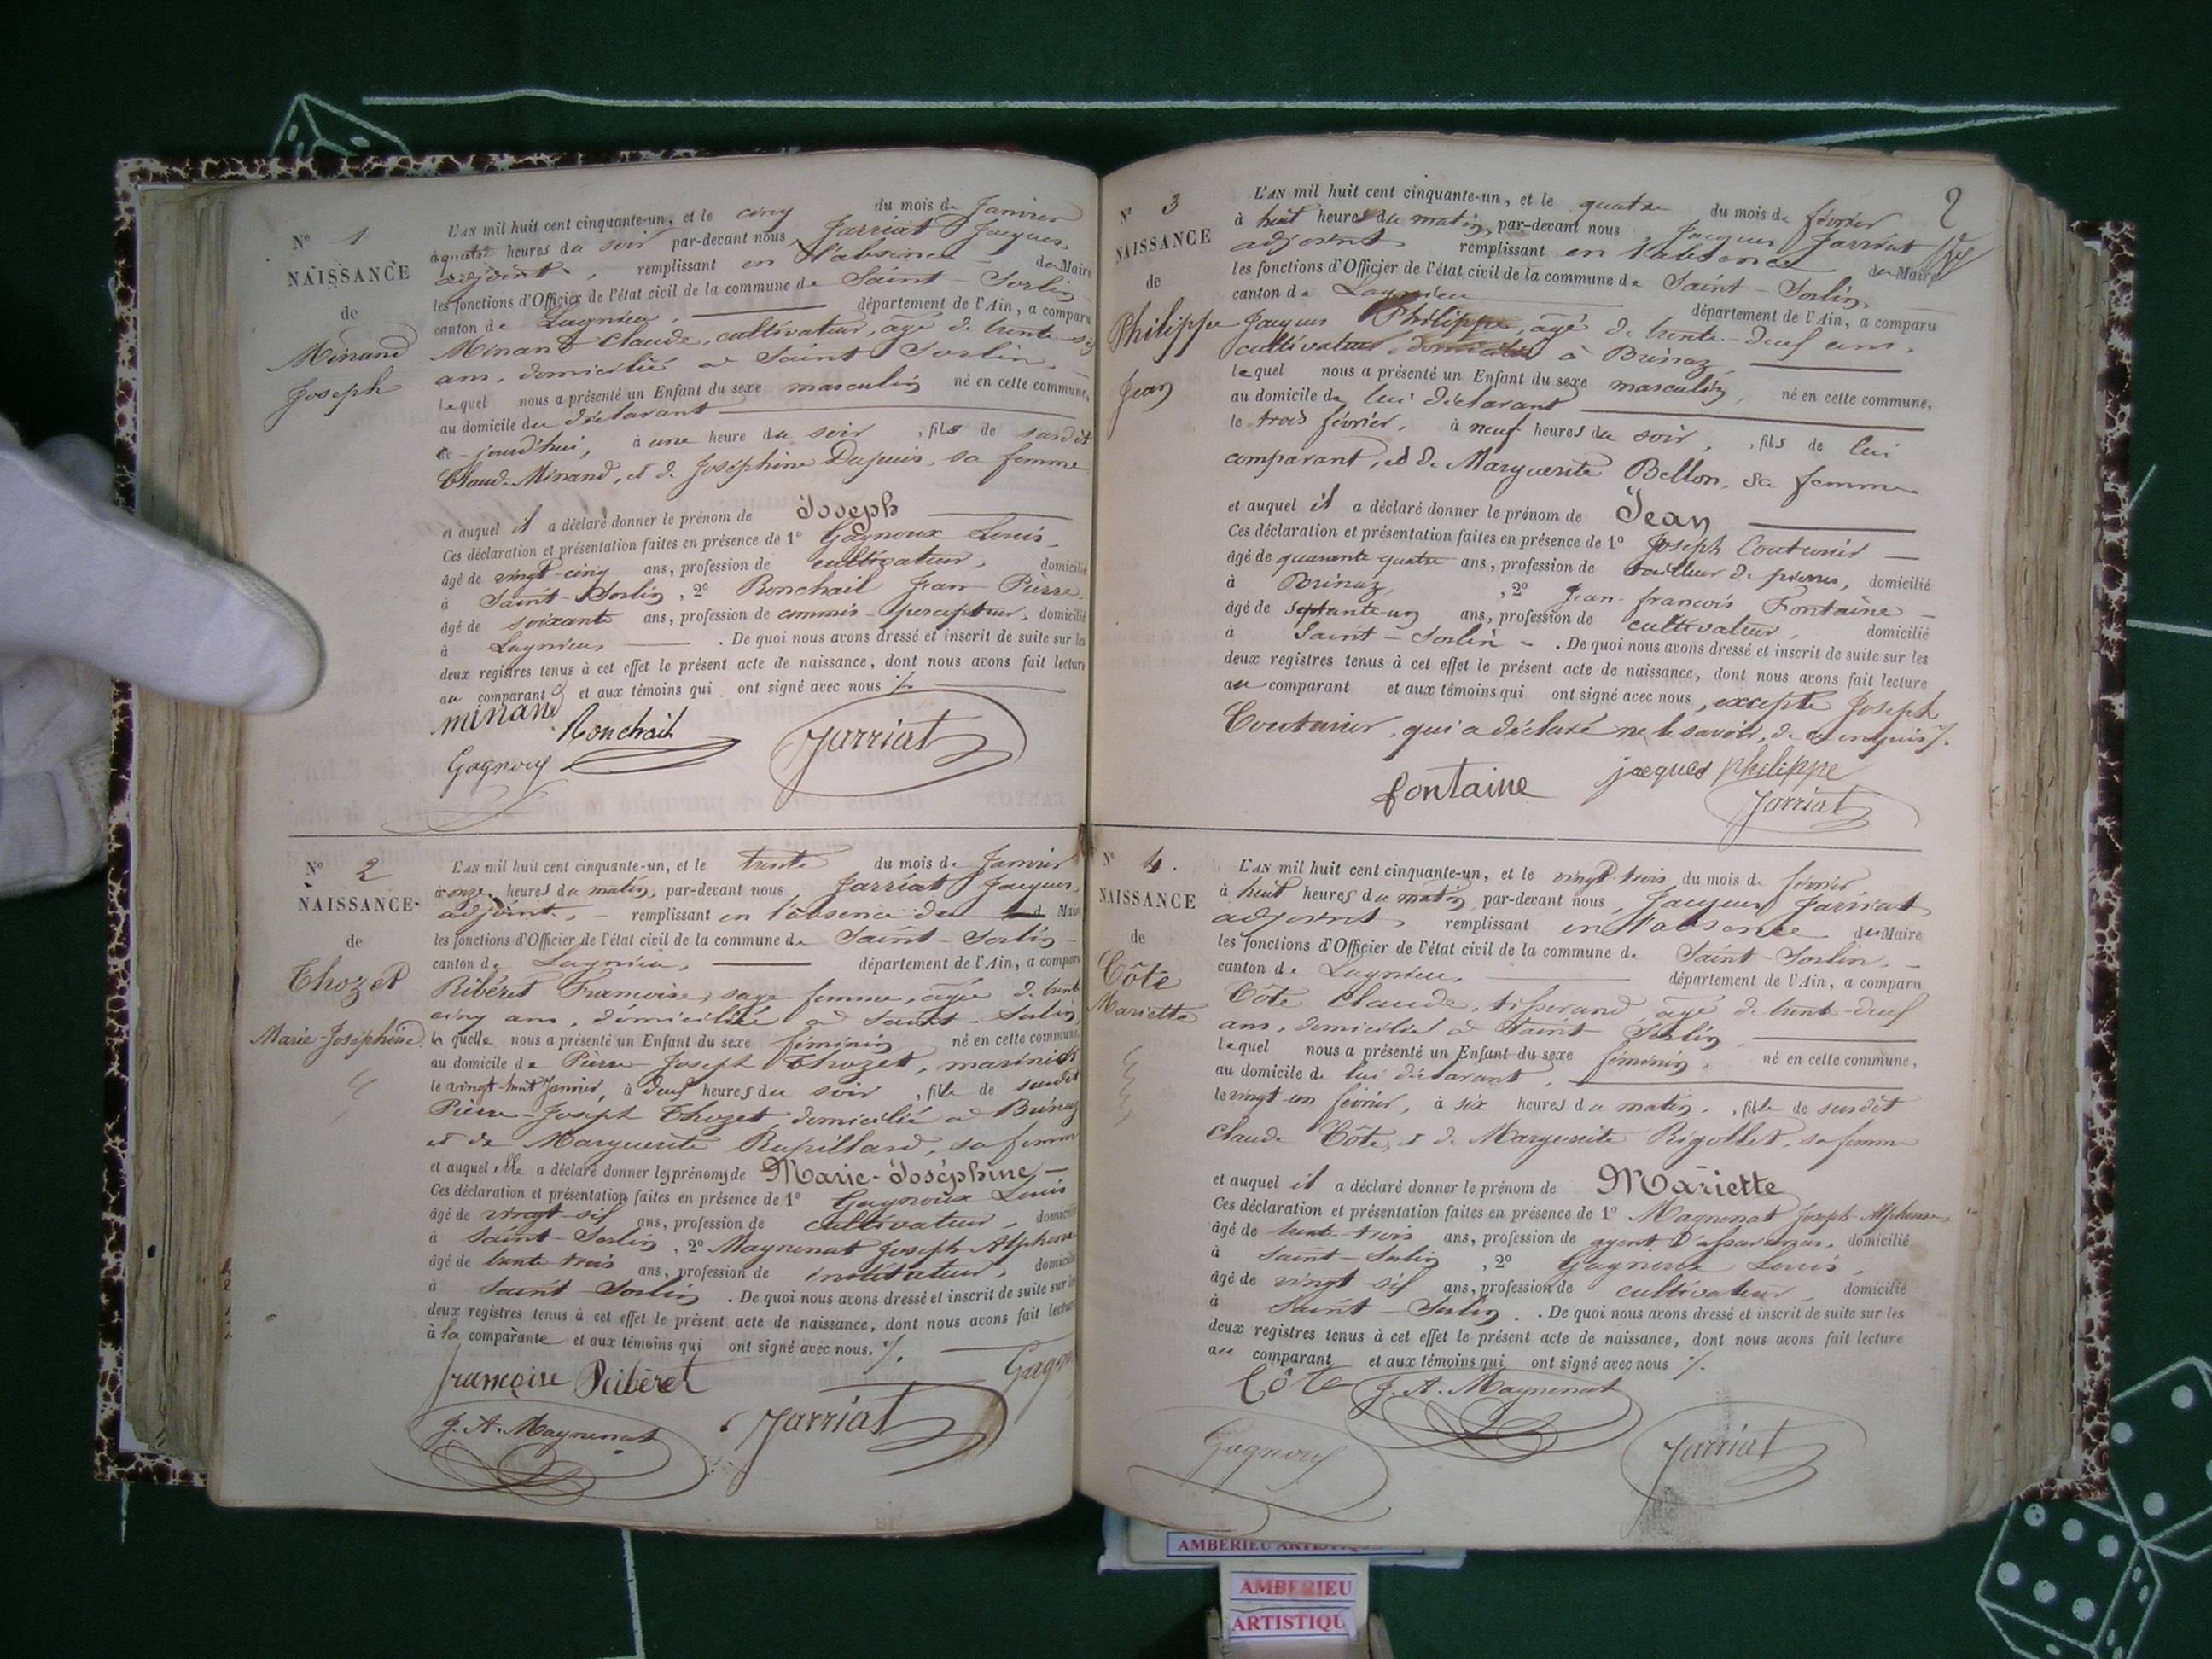 N° 1
NAISSANCE
de
Minand
Joseph
L'AN mil huit cent cinquante-un, et le cinq du mois de Janvier
à quatre heures du soir par-devant nous Jarriat Jacques
adjoint, remplissant en l'absence du Maire
les fonctions d'Officier de l'état civil de la commune de Saint-Sorlin
canton de Lagnieu, département de l'Ain, a comparu
Minand Claude, cultivateur, âgé de trente-six
ans, domicilié à Saint Sorlin,
lequel nous a présenté un Enfant du sexe masculin né en cette commune,
au domicile du déclarant
ce-jourd'hui, à une heure du soir, fils de susdit
Claude Minand, et de Joséphine Dupuis, sa femme
et auquel il a déclaré donner le prénom de Joseph
Ces déclaration et présentation faites en présence de 1° Gagnoux Louis,
âgé de vingt-cinq ans, profession de cultivateur, domicilié
à Saint-Sorlin, 2° Ronchail Jean Pierre
âgé de soixante ans, profession de commis-percepteur, domicilié
à Lagnieu . De quoi nous avons dressé et inscrit de suite sur les
deux registres tenus à cet effet le présent acte de naissance, dont nous avons fait lecture
au comparant et aux témoins qui ont signé avec nous ./.
minand Ronchail
Gagnoux Jarriat
N° 2
NAISSANCE
de
Thozet
Marie-Joséphine
L'AN mil huit cent cinquante-un, et le trente du mois de Janvier
à onze heures du matin, par-devant nous Jarriat Jacques,
adjoint, remplissant en l'absence du Maire
les fonctions d'Officier de l'état civil de la commune de Saint-Sorlin
canton de Lagnieu, département de l'Ain, a comparu
Ribéret Francoise, sage femme, âgée de trente
cinq ans, domiciliée à Saint-Sorlin,
laquelle nous a présenté un Enfant du sexe féminin né en cette commune
au domicile de Pierre Joseph Thozet, marinier
le vingt-huit Janvier, à deux heures du soir, fille de susdit
Pierre-Joseph Thozet, domicilié à Brinaz
et de Marguerite Rupillard, sa femme
et auquel elle a déclaré donner les prénoms de Marie-Joséphine
Ces déclaration et présentation faites en présence de 1° Gagnoux Louis
âgé de vingt-six ans, profession de cultivateur, domicilié
à Saint-Sorlin, 2° Magnenat Joseph Alphonse
âgé de trente trois ans, profession de instituteur, domicilié
à Saint-Sorlin . De quoi nous avons dressé et inscrit de suite sur les
deux registres tenus à cet effet le présent acte de naissance, dont nous avons fait lecture
à la comparante et aux témoins qui ont signé avec nous. ./.
françoise Ribéret Gagn
J. A. Magnenat Jarriat
2
N° 3
NAISSANCE
de
Philippe
Jean
L'AN mil huit cent cinquante-un, et le quatre du mois de février
à huit heures du matin, par-devant nous, Jacques Jarriat
adjoint remplissant en l'absence du Maire
les fonctions d'Officier de l'état civil de la commune de Saint-Sorlin,
canton de Lagnieu département de l'Ain, a comparu
Jacques Philippe, âgé de trente-deux ans,
cultivateur, domicilié à Brinaz,
lequel nous a présenté un Enfant du sexe masculin, né en cette commune,
au domicile de lui déclarant
le trois février, à neuf heures du soir, fils de lui
comparant, et de Marguerite Bellon, sa femme
et auquel il a déclaré donner le prénom de Jean
Ces déclaration et présentation faites en présence de 1° Joseph Couturier
âgé de quarante quatre ans, profession de tailleur de pierres, domicilié
à Brinaz, 2° Jean-françois Fontaine
âgé de septante-un ans, profession de cultivateur, domicilié
à Saint-Sorlin . De quoi nous avons dressé et inscrit de suite sur les
deux registres tenus à cet effet le présent acte de naissance, dont nous avons fait lecture
au comparant et aux témoins qui ont signé avec nous, excepté Joseph
Couturier, qui a déclaré ne le savoir, de ce enquis ./.
fontaine jacques philippe
Jarriat
N° 4.
NAISSANCE
de
Côte
Mariette
L'AN mil huit cent cinquante-un, et le vingt-trois du mois de février
à huit heures du matin, par-devant nous, Jacques Jarriat
adjoint, remplissant en l'absence du Maire
les fonctions d'Officier de l'état civil de la commune de Saint-Sorlin.
canton de Lagnieu, département de l'Ain, a comparu
Côte Claude, tisserand, âgé de trente-deux
ans, domicilié à Saint Sorlin,
lequel nous a présenté un Enfant du sexe féminin, né en cette commune,
au domicile de lui déclarant,
le vingt-un février, à six heures du matin, fille de susdit
Claude Côte, et de Marguerite Rigollet, sa femme
et auquel il a déclaré donner le prénom de Mariette
Ces déclaration et présentation faites en présence de 1° Magnenat Joseph-Alphonse,
âgé de trente-trois ans, profession de agent d'assurances, domicilié
à Saint-Sorlin, 2° Gagnoux Louis,
âgé de vingt-six ans, profession de cultivateur, domicilié
à Saint-Sorlin . De quoi nous avons dressé et inscrit de suite sur les
deux registres tenus à cet effet le présent acte de naissance, dont nous avons fait lecture
au comparant et aux témoins qui ont signé avec nous ./.
Côte J. A. Magnenat
Gagnoux Jarriat
AMBERIEU
AMBERIEU
ARTISTIQU